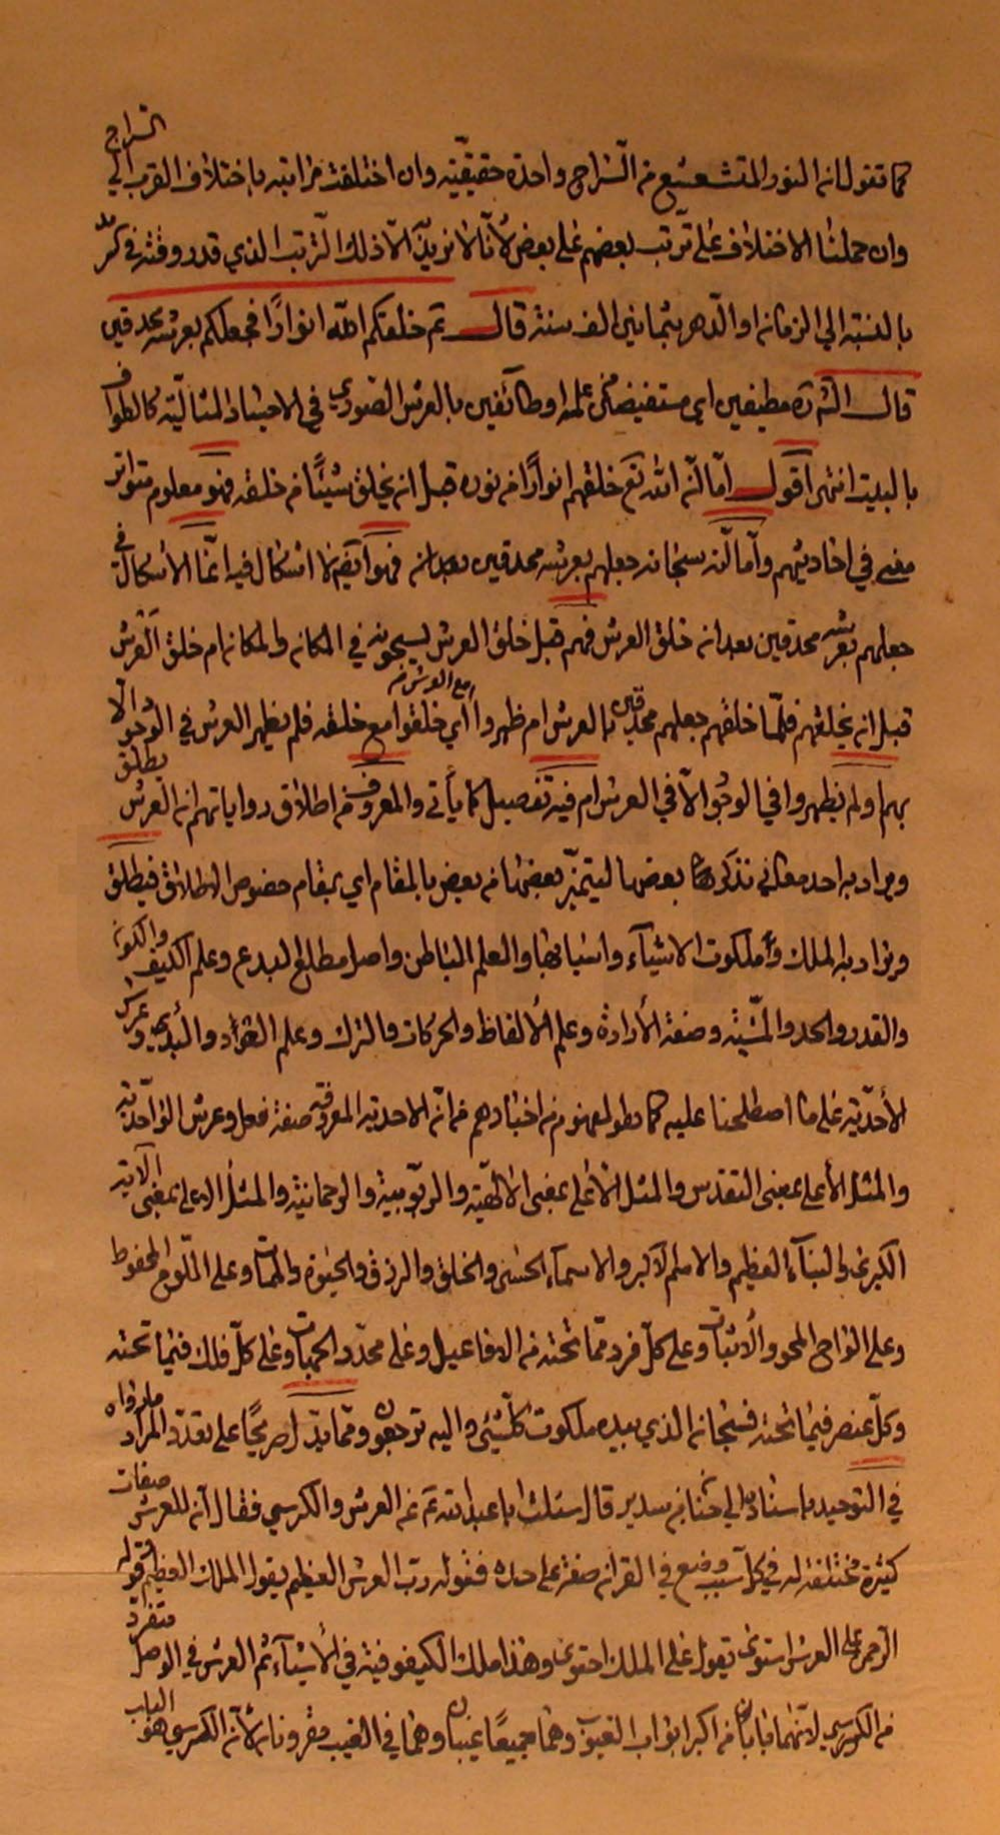 كما تقول ان النور المتشعشع من السّراج واحدة حقيقيّة وان اختلفت مراتبه باختلاف القرب الى السّراج
وان حملنا الاختلاف على ترتب بعضهم على بعض لانّا لا نريد الّا ذلك الترتب الذي قدر وقته في
بالنسبة الى الزمان او الدهر بثمانين الف سنة قال ثم خلقكم اللّه انوارًا فجعلكم بعرشه محدقين
قال الش ره مطيفين اي مستفيضين من علمه او طائفين بالعرش الصوري في الاجساد المثاليّة كالطواف
بالبيت انتهى اقول امّا انّه اللّه تع خلقهم انوارًا من نوره قبل ان يخلق شيئًا من خلقه فهو معلوم متواتر
معنى في احاديثهم وامّا انّه سبحانه جعلهم بعرشه محدقين بعد ان فهو ايضا لا اشكال فيه انّما الاشكال في
جعلهم بعرشه محدقين بعد ان خلق العرش فهم قبل خلق العرش يسبحونه في المكانه والمكانه ام خلق العرش
قبل ان يخلقهم فلمّا خلقهم جعلهم محدقين بالعرش ام ظهروا مع العرش اي خلقوا مع خلقه فلم يظهر العرش في الوجود الّا
بهم ولم يظهروا في الوجود الّا في العرش ام فيه تفصيل كما يأتي والمعروف من اطلاق رواياتهم ان العرش يطلق
ويراد به احد معاني نذكر بعضها ليتميّز بعضها من بعض بالمقام اي بمقام خصوص الاطلاق فيطلق
ويراد به الملك وملكوت الاشياء واسبابها والعلم الباطن واصل مطلع البدع وعلم الكيف والكون
والقدر والحد والمشيّة وصفة الأرادة وعلم الألفاظ والحركات والترك وعلم العود والبدء وعرش
الأحديّة على ما اصطلحنا عليه كما هو المفهوم من اخبارهم من انّ الاحدية المعروفة صفة فعل وعرش الواحديّة
والمثل الأعلى بمعنى التقدس والمثل الأعلى بمعنى الالهيّة والربّوبية والرحمانية والمثل الاعلى بمعنى الآية
الكبرى والنبآء العظيم والاسم الاكبر والاسماء الحسنى والخلق والرزق والحيوة والممات وعلى اللّوح المحفوظ
وعلى الواح المحو والأثبات وعلى كلّ فرد ممّا تحته من الافاعيل وعلى محدّد الجهات وعلى كلّ فلك فيما تحته
وكلّ عنصر فيما تحته فسبحان الذي بيده ملكوت كلّ شئ واليه ترجعون وممّا يدل صريحًا على تعدّد المراد ما رواه
في التوحيد باسناده الى حنان بن سدير قال سئلت ابا عبد اللّه ع عن العرش والكرسي فقال انّ للعرش صفات
كثيرة مختلفة له في كلّ سبب وضع في القران صفة على حده فقوله ربّ العرش العظيم يقول الملك العظيم وقوله
الرحمن على العرش استوى يقول على الملك احتوى وهذا ملك الكيفوفية في الأشياء ثم العرش في الوصل متفرد
من الكرسي لانّهما بابان من اكبر ابواب الغيوب وهما جميعًا غيبان وهما في الغيب مقرونان لأن الكرسي هو الباب